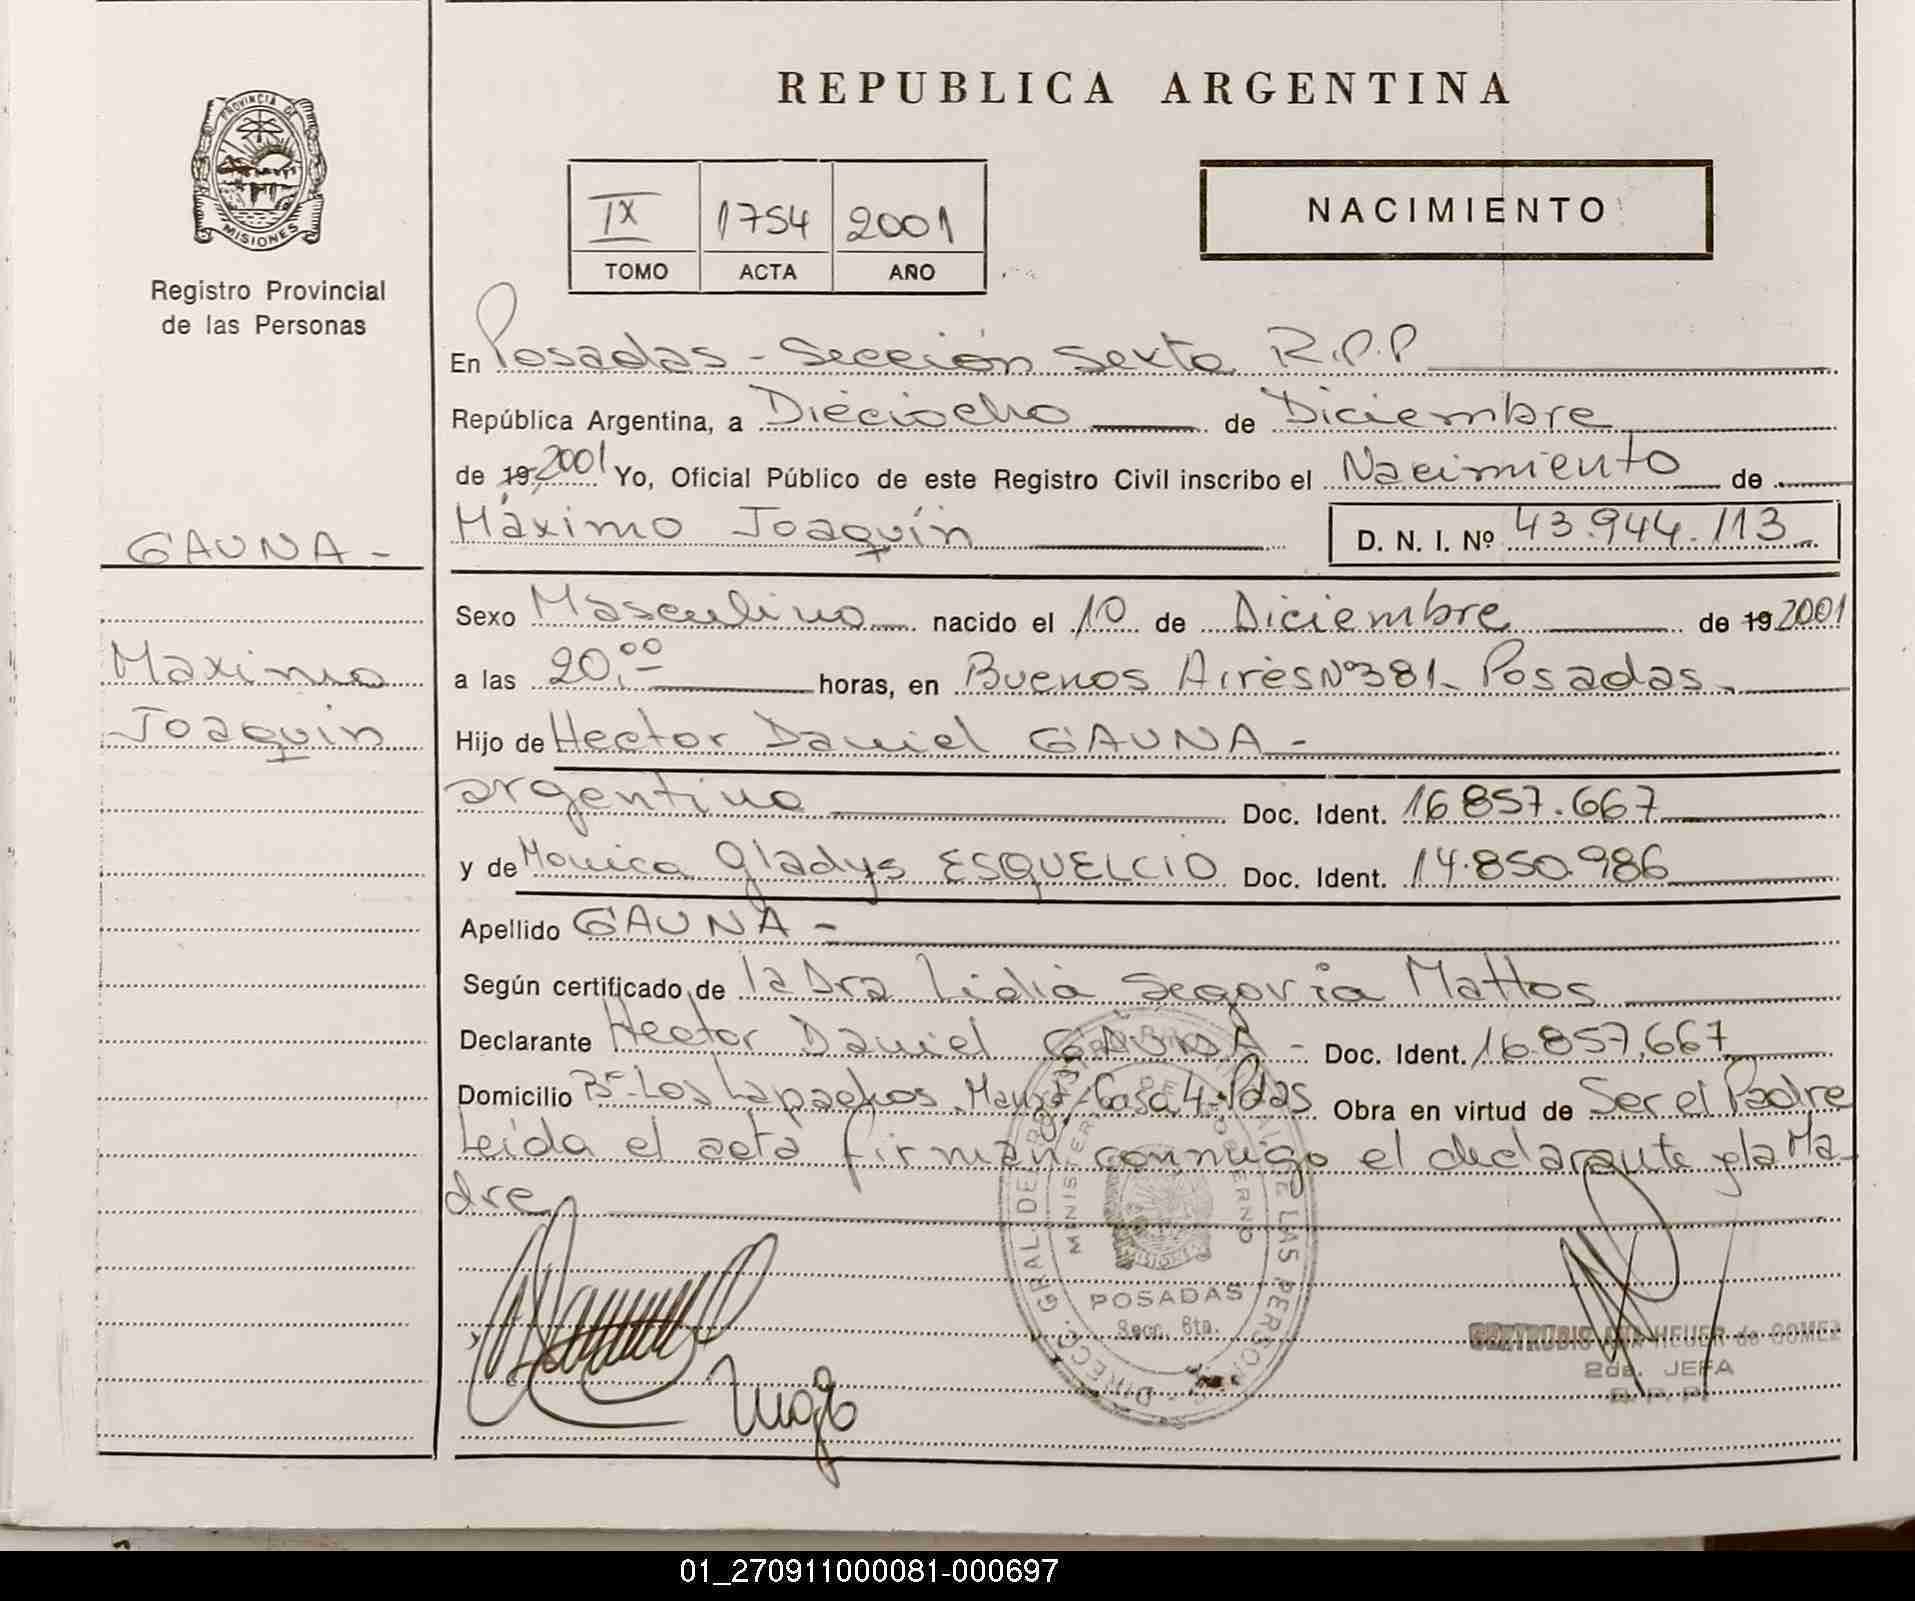 REPUBLICA ARGENTINA
PROVINCIA DE
MISIONES
Registro Provincial
de las Personas
IX 1754 2001
TOMO ACTA AÑO
NACIMIENTO
En Posadas - Sección Sexta R.P.P
República Argentina, a Dieciocho de Diciembre
de 19 2001 Yo, Oficial Público de este Registro Civil inscribo el Nacimiento de
Máximo Joaquín D. N. I. Nº 43.944.113
GAUNA -
Maximo
Joaquin
Sexo Masculino nacido el 10 de Diciembre de 19 2001
a las 20,00 horas, en Buenos Aires Nº 381- Posadas
Hijo de Hector Daniel GAUNA -
argentino Doc. Ident. 16857.667
y de Monica Gladys ESQUELCIO Doc. Ident. 14.850.986
Apellido GAUNA -
Según certificado de la Dra Lidia Segovia Mattos
Declarante Hector Daniel GAUNA - Doc. Ident. 16.857.667
Domicilio Bº Los Lapachos Casa 4- Pdas Obra en virtud de Ser el Padre
Leída el acta firman conmigo el declarante y la Ma-
dre
DIRECC. GRAL. DE LAS PERSONAS
MINISTERIO DE GOBIERNO
POSADAS
Secc. 6ta.
HEUER de GOMEZ
2da. JEFA
R. P. P.
01_270911000081-000697